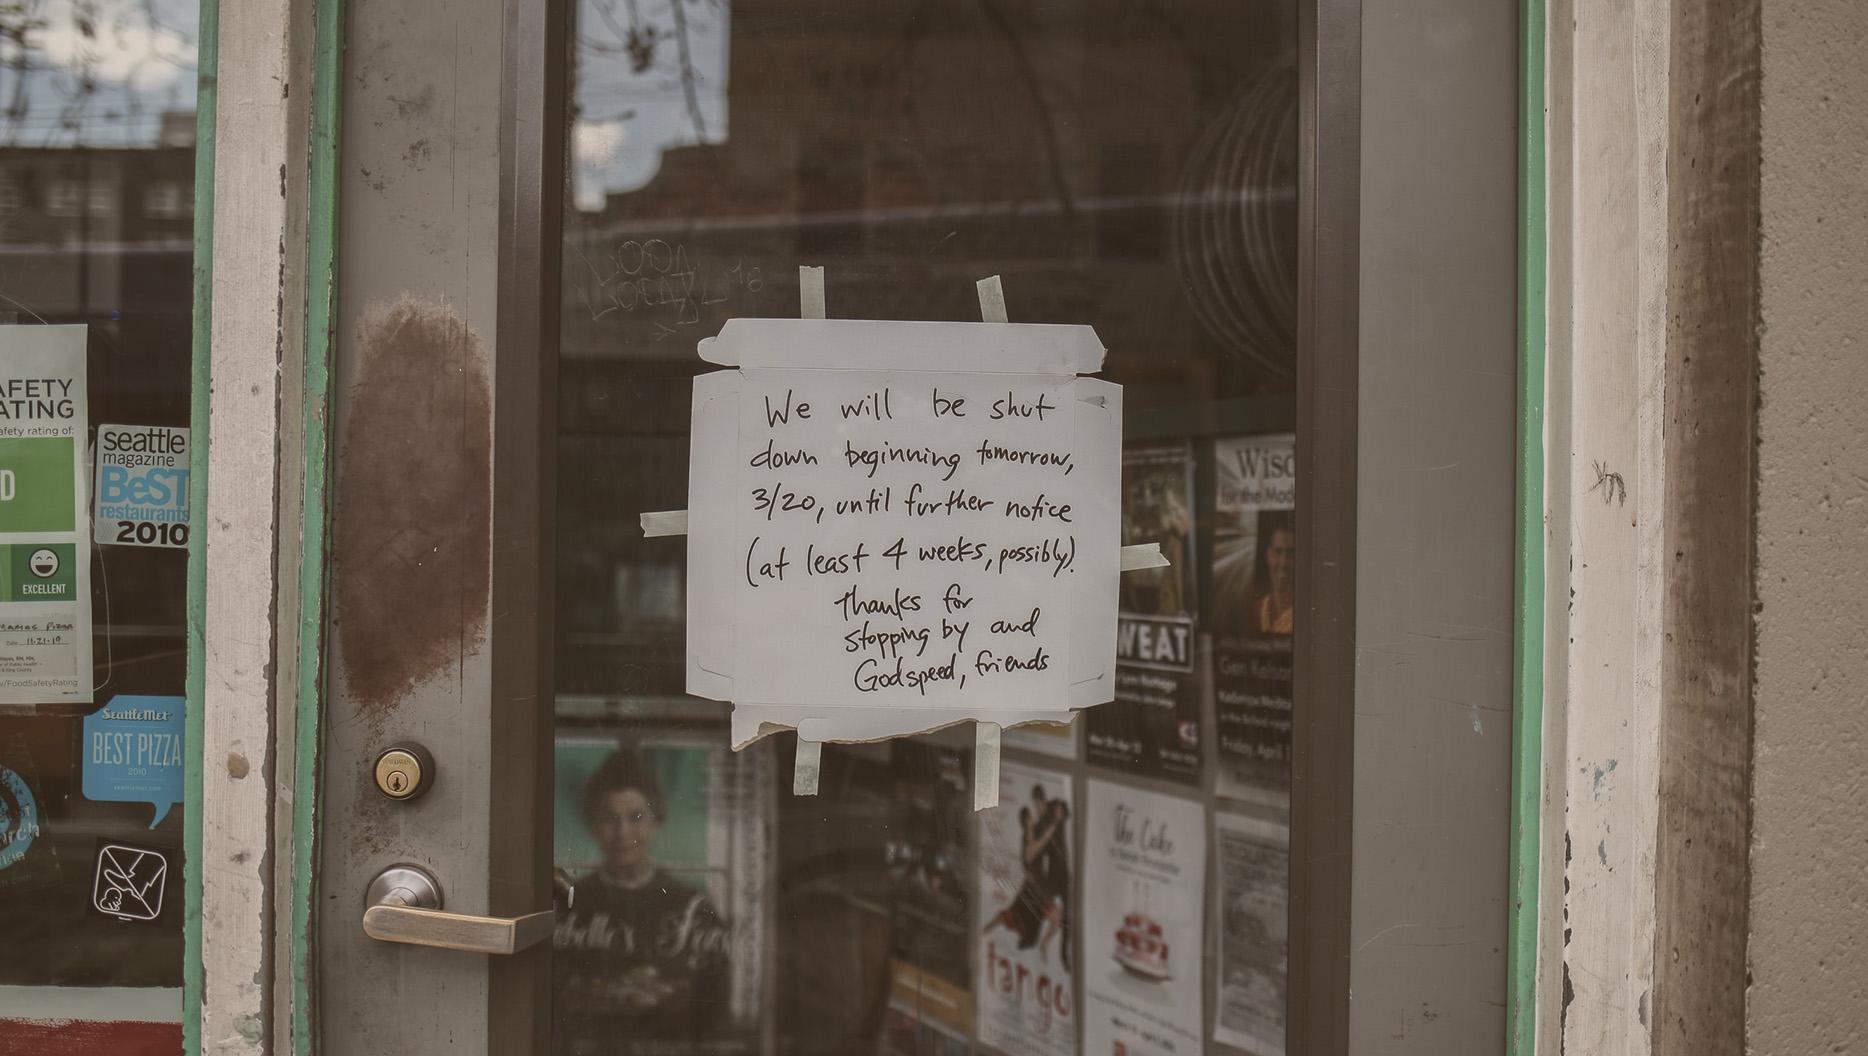 AFETY
ATING
afety rating of:
D
EXCELLENT
MAMAS PIZZA
Date 11.21.19
v/FoodSafetyRating
seattle
magazine
BeST
restaurants
2010
SeattleMet
BEST PIZZA
2010
seattlemet.com
We will be shut
down beginning tomorrow,
3/20, until further notice
(at least 4 weeks, possibly).
Thanks for
stopping by and
Godspeed, friends
Wisd
for the Mod
WEAT
Friday, April 1
tango
The Cake